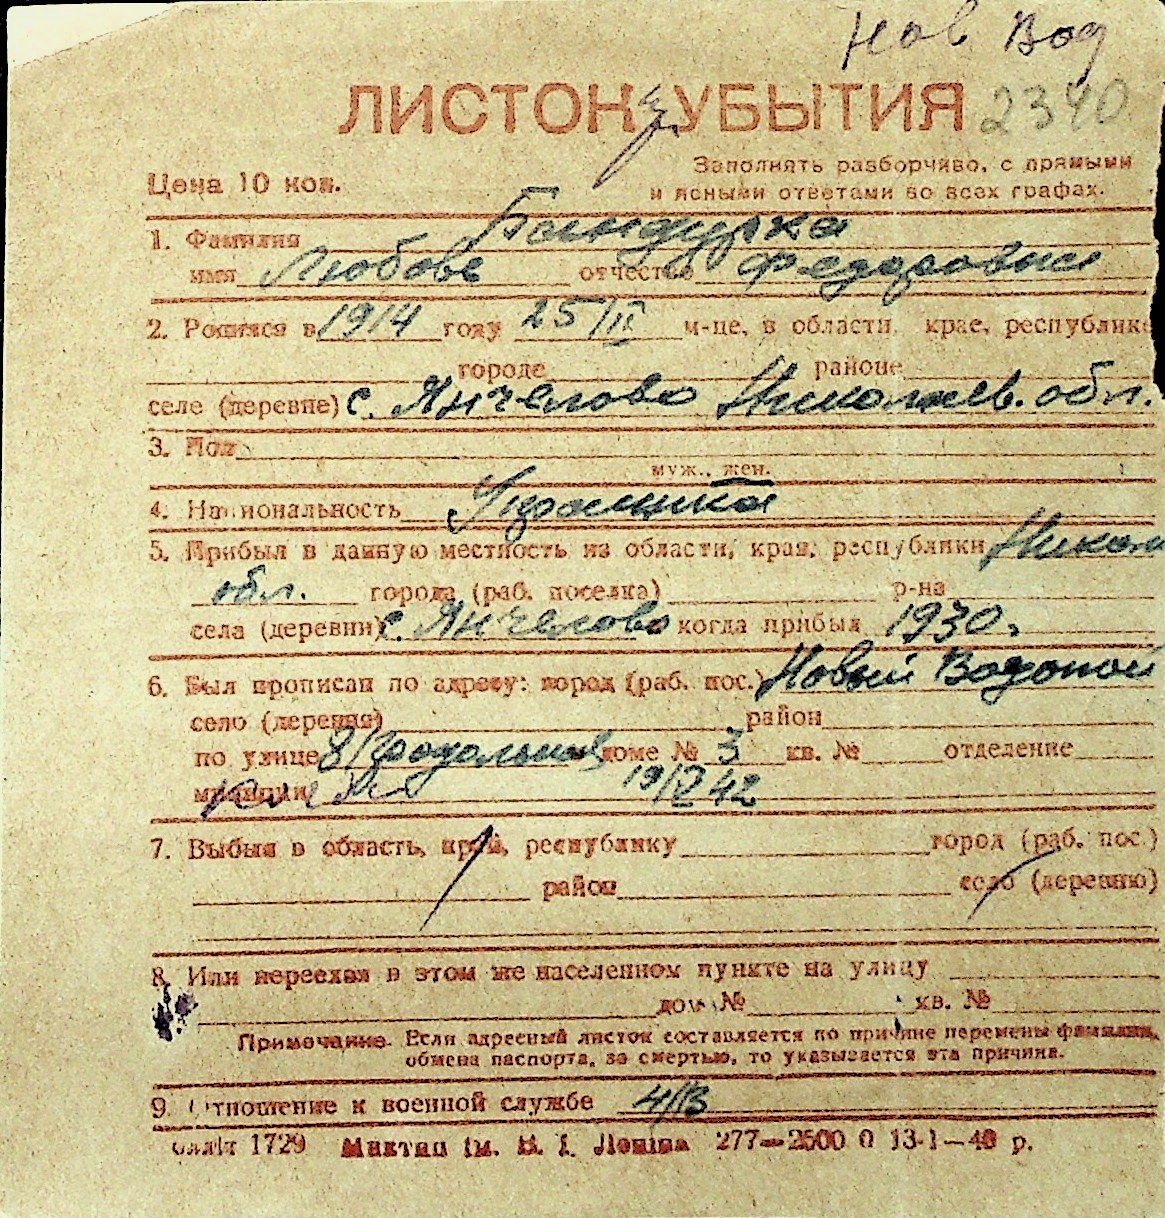 Нов Вод
ЛИСТОК УБЫТИЯ 2340
Заполнять разборчиво, с прямыми
Цена 10 коп.
и ясными ответами во всех графах.
1. Фамилия Бандурка
имя Любовь отчество Федоровна
2. Родился в 1914 году 25/III м-це, в области, крае, республике
городе районе
селе (деревне) с. Янчелово Николаев. обл.
3. Пол
муж., жен.
4. Национальность Украинка
5. Прибыл в данную местность из области, края, республики Никол
обл. города (раб. поселка) р-на
села (деревни) с. Янчелово когда прибыл 1930.
6. Был прописан по адресу: город (раб. пос.) Новый Водопой
село (деревня) район
по улице 8 Продольная доме № 3 кв. № отделение
милиции 42
7. Выбыл в область, край, республику город (раб. пос.)
район село (деревню)
8. Или переехал в этом же населенном пункте на улицу
дом № кв. №
Примечание. Если адресный листок составляется по причине перемены фамилии,
обмена паспорта, за смертью, то указывается эта причина.
9. Отношение к военной службе н/в
1729 Миктип ім. В. І. Леніна 277—2500 0 13-1—40 р.